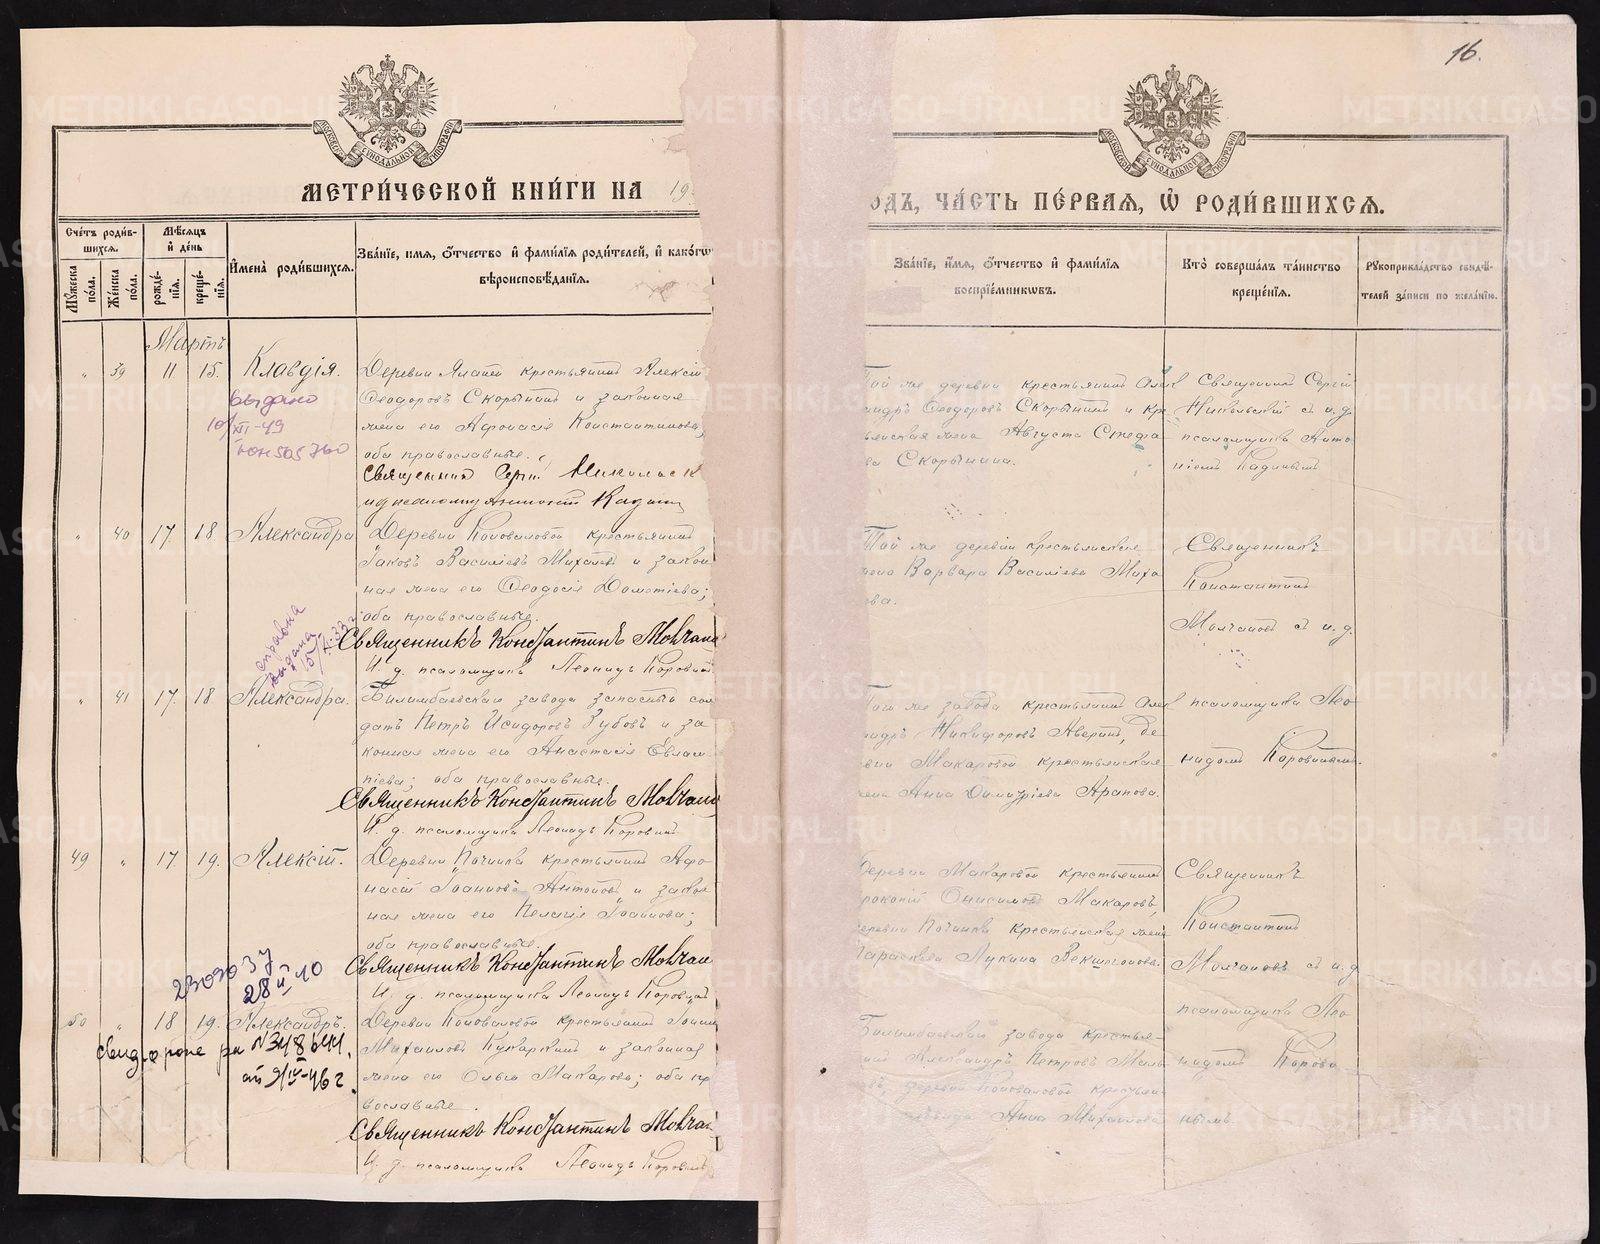 16.
МЕТРИ́ЧЕСКОЙ КНИ́ГИ НА 19
ОДЪ, ЧА́СТЬ ПЕ́РВАЯ, Ѡ҆ РОДИ́ВШИХСЯ.
Сче́тъ роди́в-
шихся.
Му́жеска по́ла.
Же́нска по́ла.
Мѣ́сяцъ и҆ де́нь
рожде́-
нїя.
креще́-
нїя.
И҆мена̀ роди́вшихся.
Зва́нїе, и҆мя, ѻ҆́тчество и҆ фами́лїя роди́телей, и҆ како́гѡ
вѣроисповѣ́данїя.
Зва́нїе, и҆́мя, ѻ҆́тчество и҆ фами́лїя
воспрїе́мникѡвъ.
Кто̀ соверша́лъ та́инство
креще́нїя.
Рꙋкоприкла́дство свидѣ́-
телей за́писи по жела́нїю.
Мартъ
" 39 11 15. Клавдія.
выдано
10/XII-49
ЮН 505760
Деревни крестьянинъ Алексій
Ѳеодоровъ Скорынинъ и законная
жена его Афонасія Константинова;
оба православные.
Священникъ
Той же деревни крестьянинъ Алек
андръ Ѳеодоровъ Скорынинъ и кре
стьянская жена Августа Стефа
ва Скорынина.
Священникъ Сергій
Никольскій съ и. д.
псаломщика Анто
ніемъ
" 40 17. 18 Александра
Деревни Коноваловой крестьянинъ
Іаковъ Василіевъ Михалевъ и закон
ная жена его Ѳеодосія Дометіева;
оба православные.
Священникъ Константинъ Молчано
И. д. псаломщика Леонидъ Коровинъ
Той же деревни крестьянская
жена Варвара Василіева Миха
ева.
Священникъ
Константинъ
Молчановъ съ и. д.
справка
выдана
15/X-33 г.
" 41 17. 18 Александра.
Билимбаевскаго завода запасный сол
датъ Петръ Исидоровъ Зубовъ и за
конная жена его Анастасія Евлам-
піева; оба православные.
Священникъ Константинъ Молчано
И. д. псаломщика Леонидъ Коровинъ
Того же завода крестьянинъ Алек
андръ Никифоровъ Аверинъ, де
вни Макаровой крестьянская
жена Анна Димитріева Арапова.
псаломщика Лео
нидомъ Коровинымъ.
49 " 17. 19. Алексій.
Деревни Починка крестьянинъ Афо
насій Іоанновъ Антоновъ и закон
ная жена его Пелагія Іоаннова;
оба православные.
Священникъ Константинъ Молчан
И. д. псаломщика Леонидъ Коровинъ
Деревни Макаровой крестьянинъ
рокопій Онисимовъ Макаровъ,
деревни Починка крестьянская жена
Параскева Лукина Векшегонова.
Священникъ
Константинъ
Молчановъ съ и. д.
псаломщика Лео
нидомъ Корови
нымъ.
2309037
28 II 40
50 " 18 19. Александръ.
свид. о рож. № 348644.
от 9/IV-46 г.
Деревни Коноваловой крестьянинъ Іоанн
Михаиловъ Кукаркинъ и законная
жена его Ольга Макарова; оба пр
вославные.
Священникъ Константинъ Молчан
И. д. псаломщика Леонидъ Коровинъ
Билимбаевскаго завода крестья-
нинъ Александръ Петровъ
деревни Коноваловой крестьян
Анна Михаилова